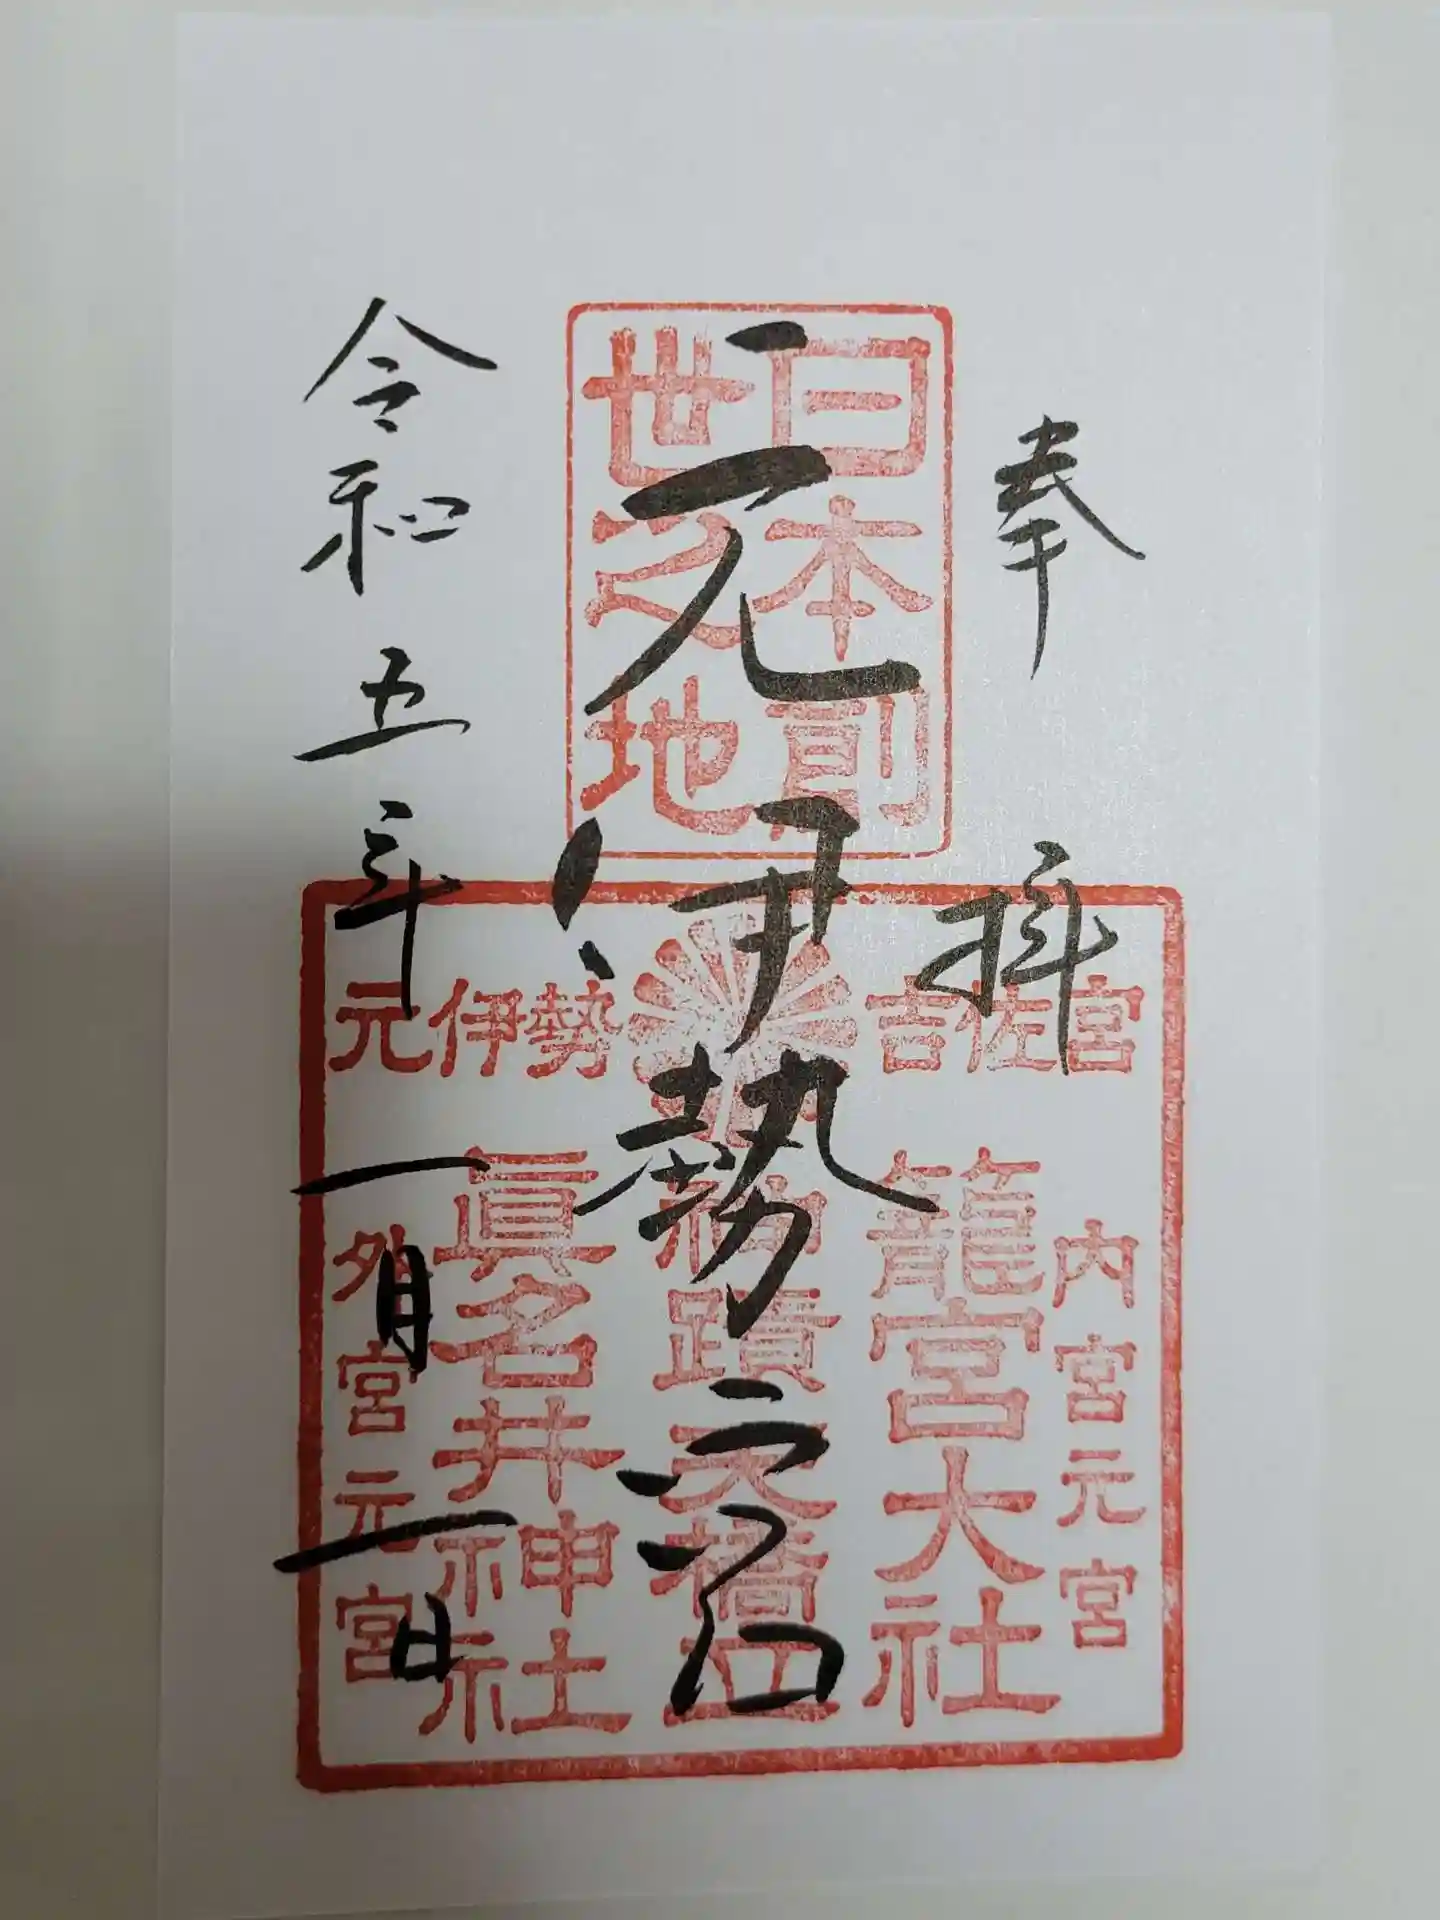 奉拝
日本創
世之地
元伊勢之宮
吉佐宮
元伊勢
内宮元宮
籠宮大社
神蹟天橋立
眞名井神社
外宮元宮
令和五年一月一日